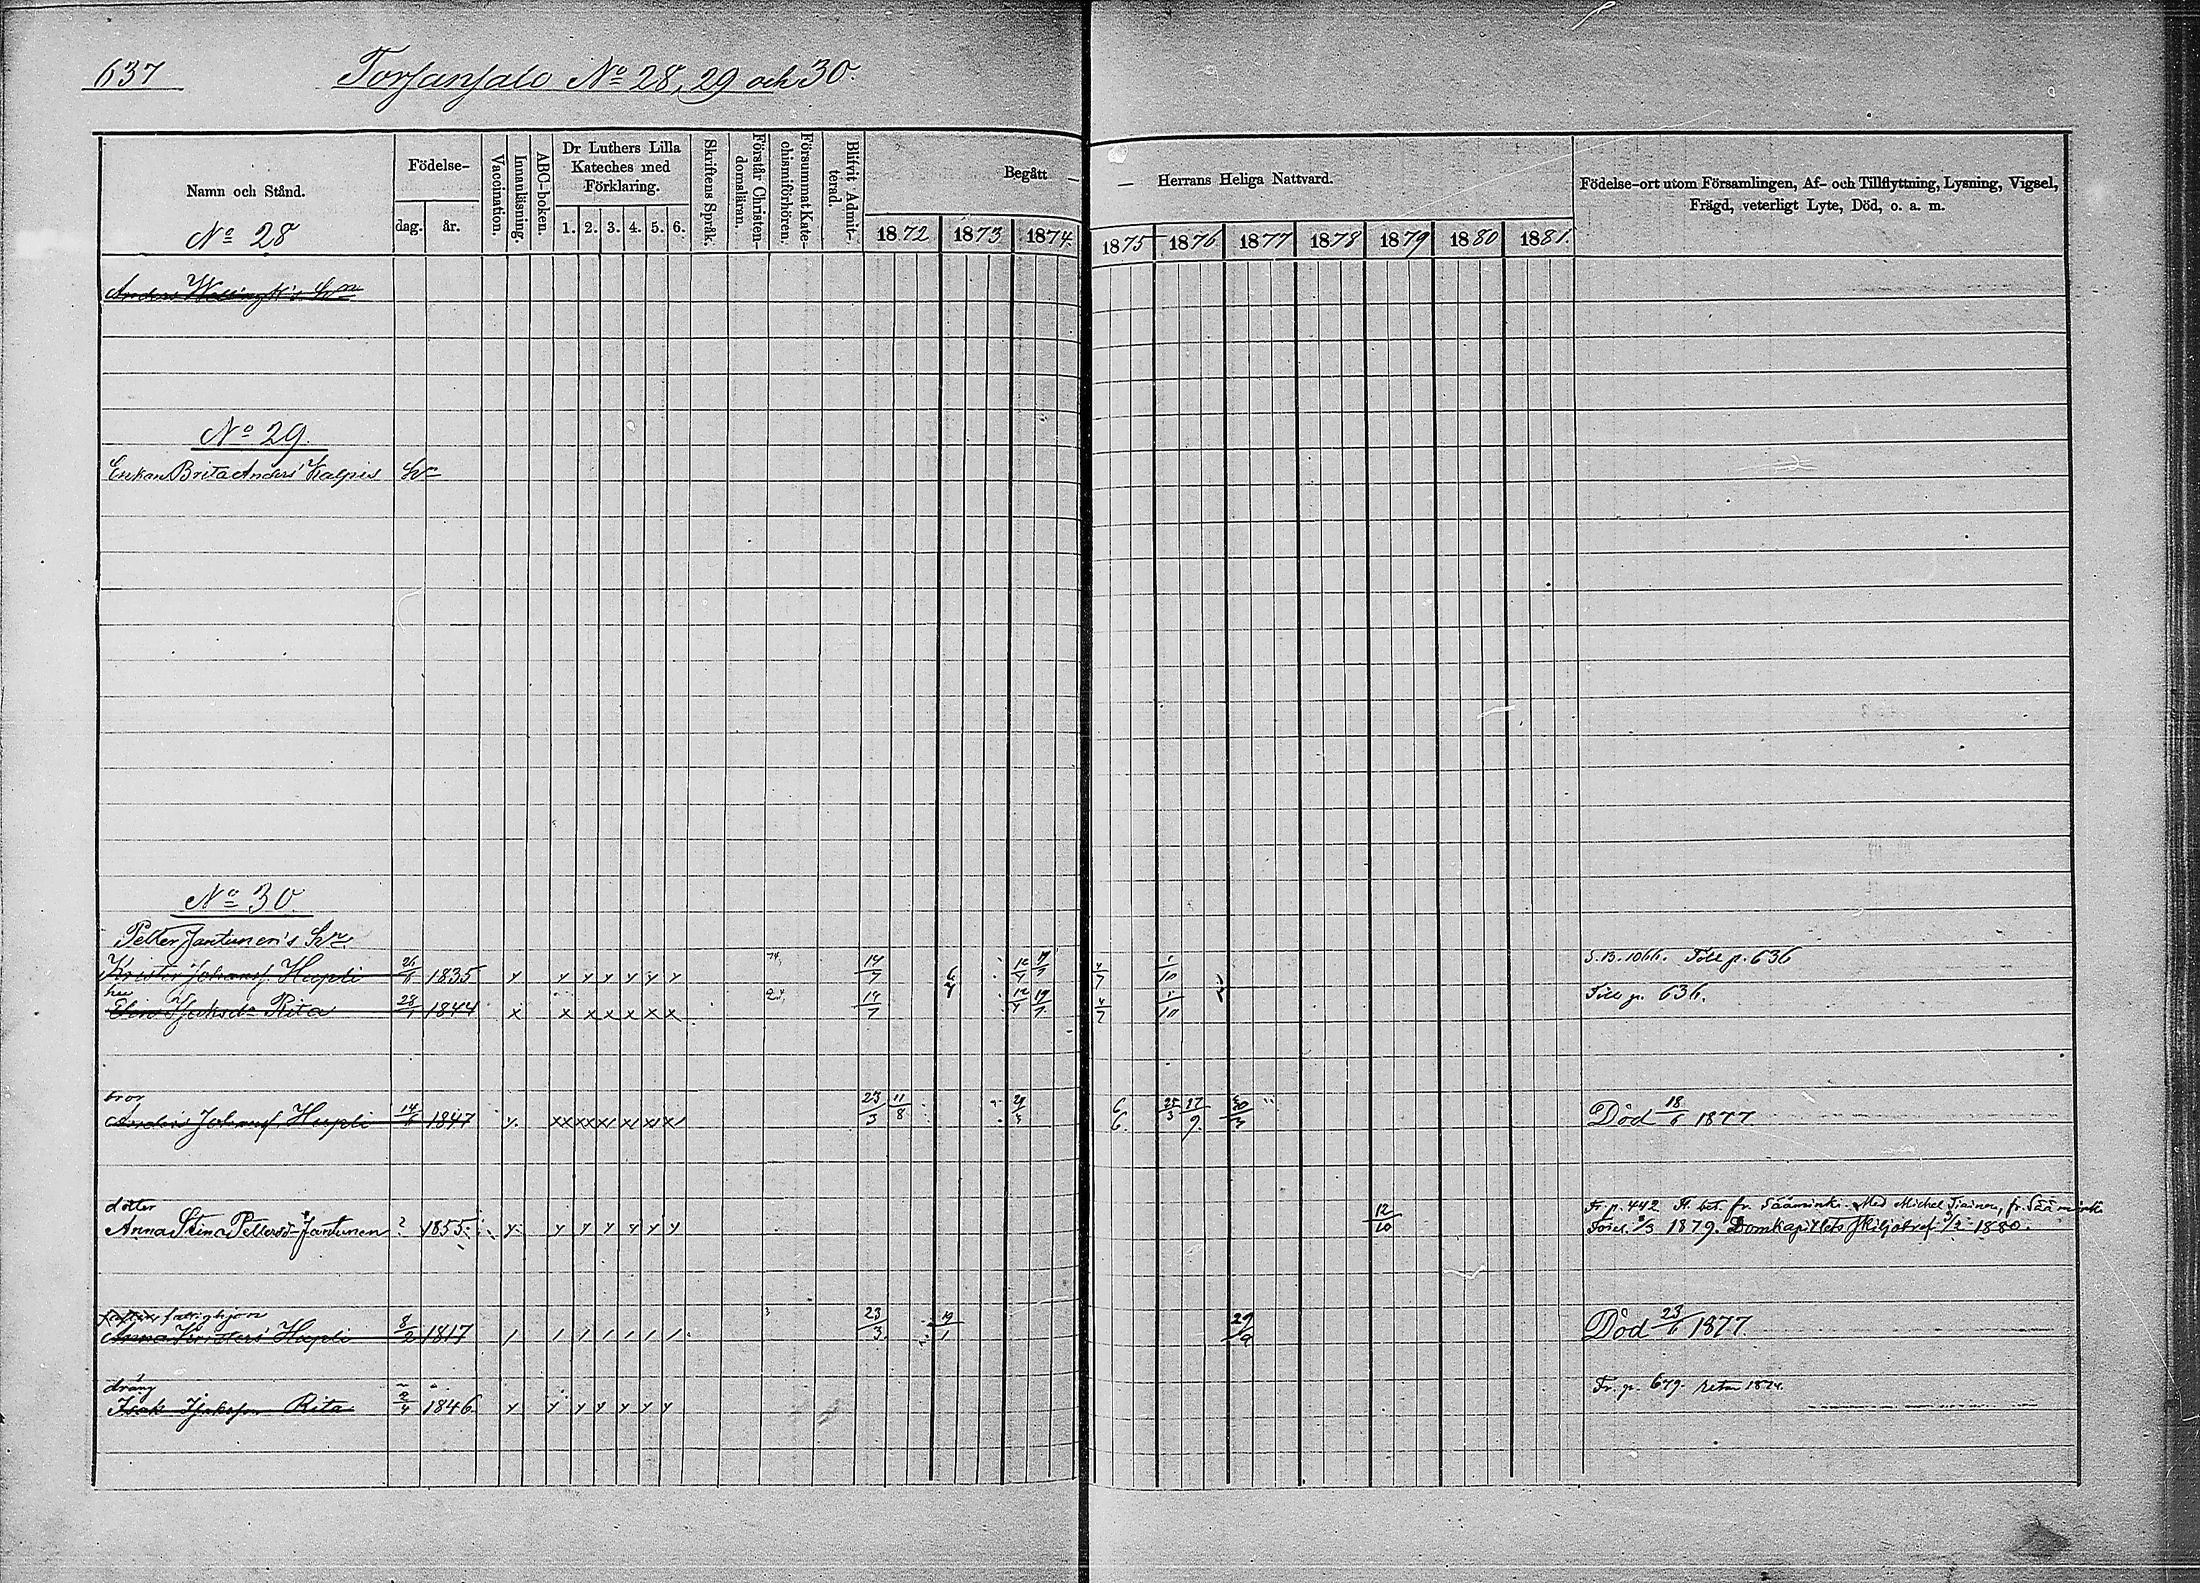 637
Torsansalo No 28, 29 och 30.
Namn och Stånd.
Födelse-
dag. år.
Vaccination.
Innanläsning.
ABC-boken.
Dr Luthers Lilla
Kateches med
Förklaring.
1. 2. 3. 4. 5. 6.
Skriftens Språk.
Förstår Christen-
domslärnn.
Försummat Kate-
chismiförhören.
Blifvit Admit-
terad.
Begått —
— Herrans Heliga Nattvard.
1872 1873 1874
1875 1876 1877 1878 1879 1880 1881.
Födelse-ort utom Församlingen, Af- och Tillflyttning, Lysning, Vigsel,
Frägd, veterligt Lyte, Död, o. a. m.
No 28
Anders
No 29.
Enkan Brita Anders
No 30.
Petter Jantunen's
Krister Johansf. Hupli 26/6 1835 y y y y y y y 14/7 12/4 4/7 1/10 S.B. 1066. Till p. 636
hu
Elin Isaksdr Rita 28/1 1844 x x x x x x x 14/7 12/4 19/7 4/7 1/10 Till p. 636.
bror
Anders Johansf Hupli 14/6 1847 y. xx xx x/ x/ x/ x/ 23/3 11/8 6/6 25/3 17/9 Död 18/6 1877.
dotter
Anna Stina Pettersdr Jantunen ? 1855. y y y y y y y 12/10 Fr. p. 442 Fl. bet. fr. Sääminki. Med Michel Tiainen, fr. Sääminki
1879. Domkapitlets Skiljobref 1880.
fattighjon
Anna Kristers Hupli 8/2 1817 / / / / / / / 23/3. 29/9 Död 23/6 1877.
dräng
Isak Isaksson Rita 2/4 1846. y y y y y y y Fr. p. 679.